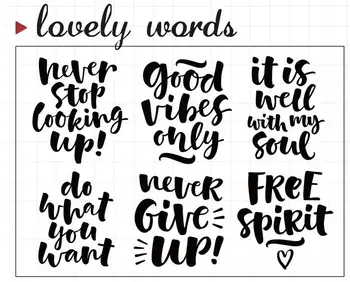 lovely words
never
stop
looking
up!
good
vibes
only
it is
well
with my
soul
do
what
you
want
never
Give
UP!
FREE
SPiRiT